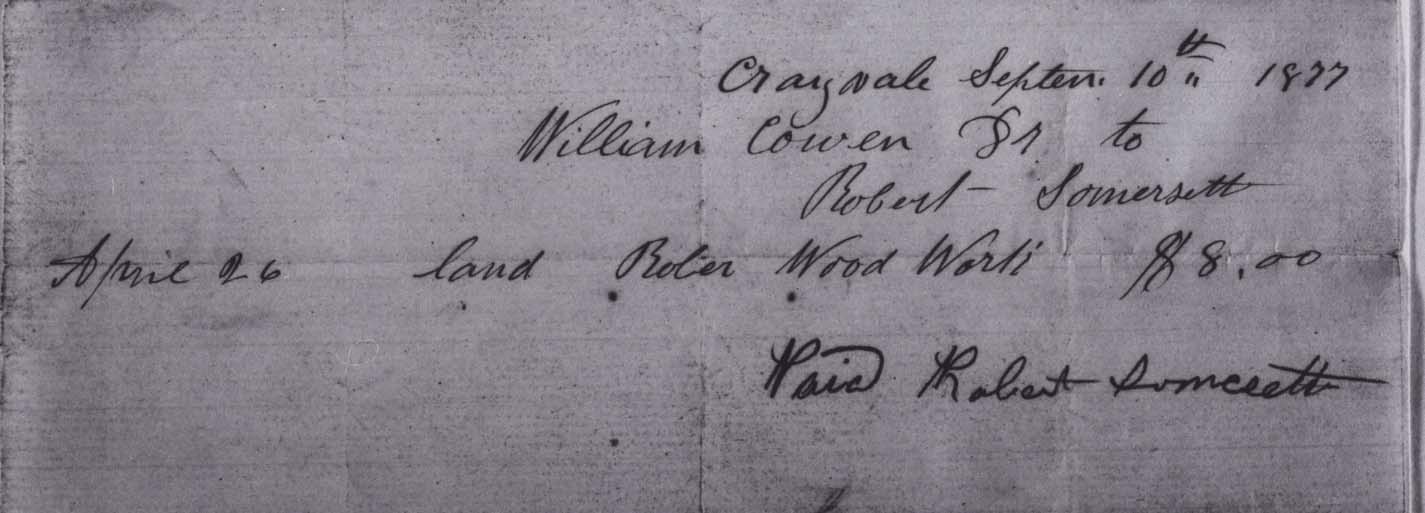 Craigvale Septem. 10th 1877
William Cowen Dr to
Robert Somersett
April 26 land Roler Wood Work $8.00
Paid Robert Somersett